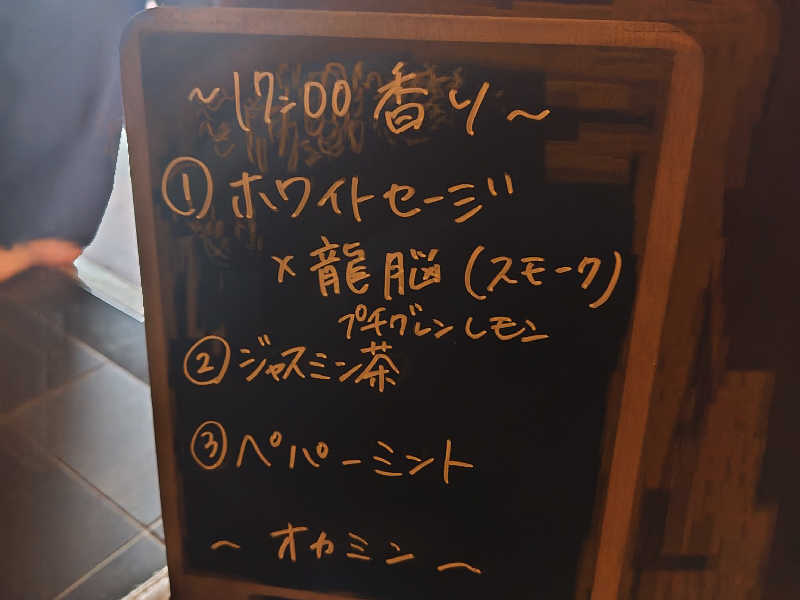 ~17:00 香り~
① ホワイトセージ
×龍脳(スモーク)
プチグレンレモン
② ジャスミン茶
③ ペパーミント
~オカミン~